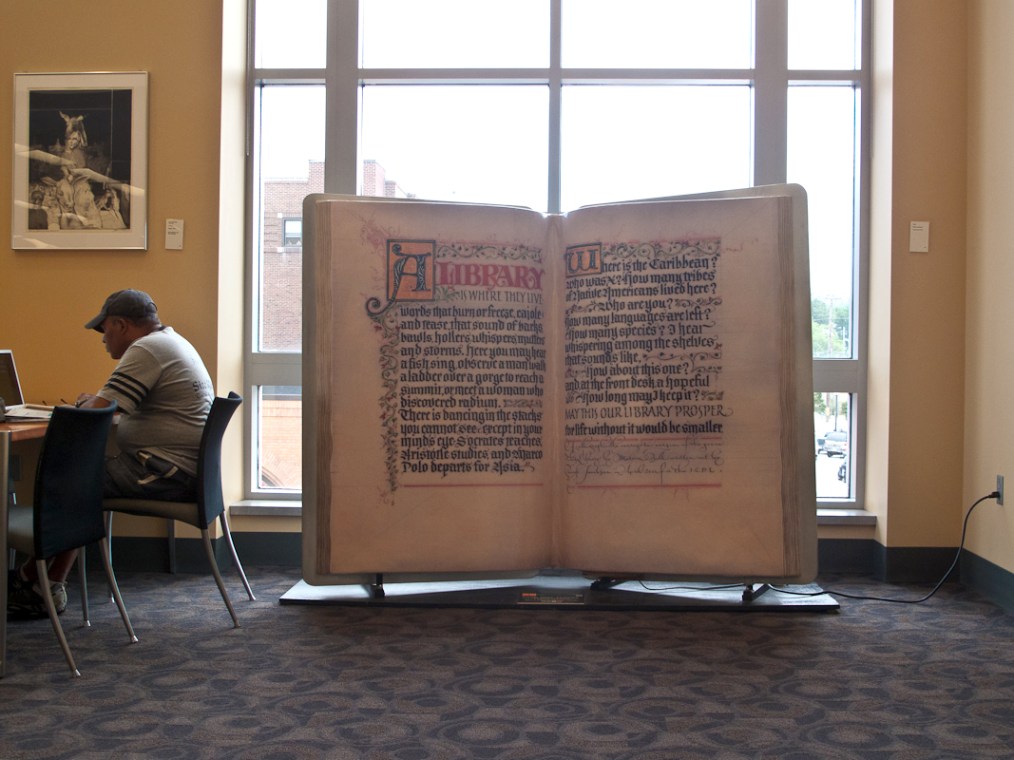 A LIBRARY
IS WHERE THEY LIVE
words that burn or freeze, cajole
and tease, that sound of
bawls, hollers whispers
and storms. Here you may hear
a fish sing, observe a man walk
a ladder over a gorge to reach a
summit, or meet a woman who
discovered radium.
There is dancing in the stacks
you cannot see except in your
minds eye. Socrates teaches,
Aristotle studies and Marco
Polo departs for Asia.
Where is the Caribbean?
who was X? How many tribes
of Native Americans lived here?
Who are you?
How many languages are left?
How many species? I hear
whispering among the shelves,
that sounds like,
How about this one?
and, at the front desk a hopeful
How long may I keep it?
MAY THIS OUR LIBRARY PROSPER
life without it would be smaller